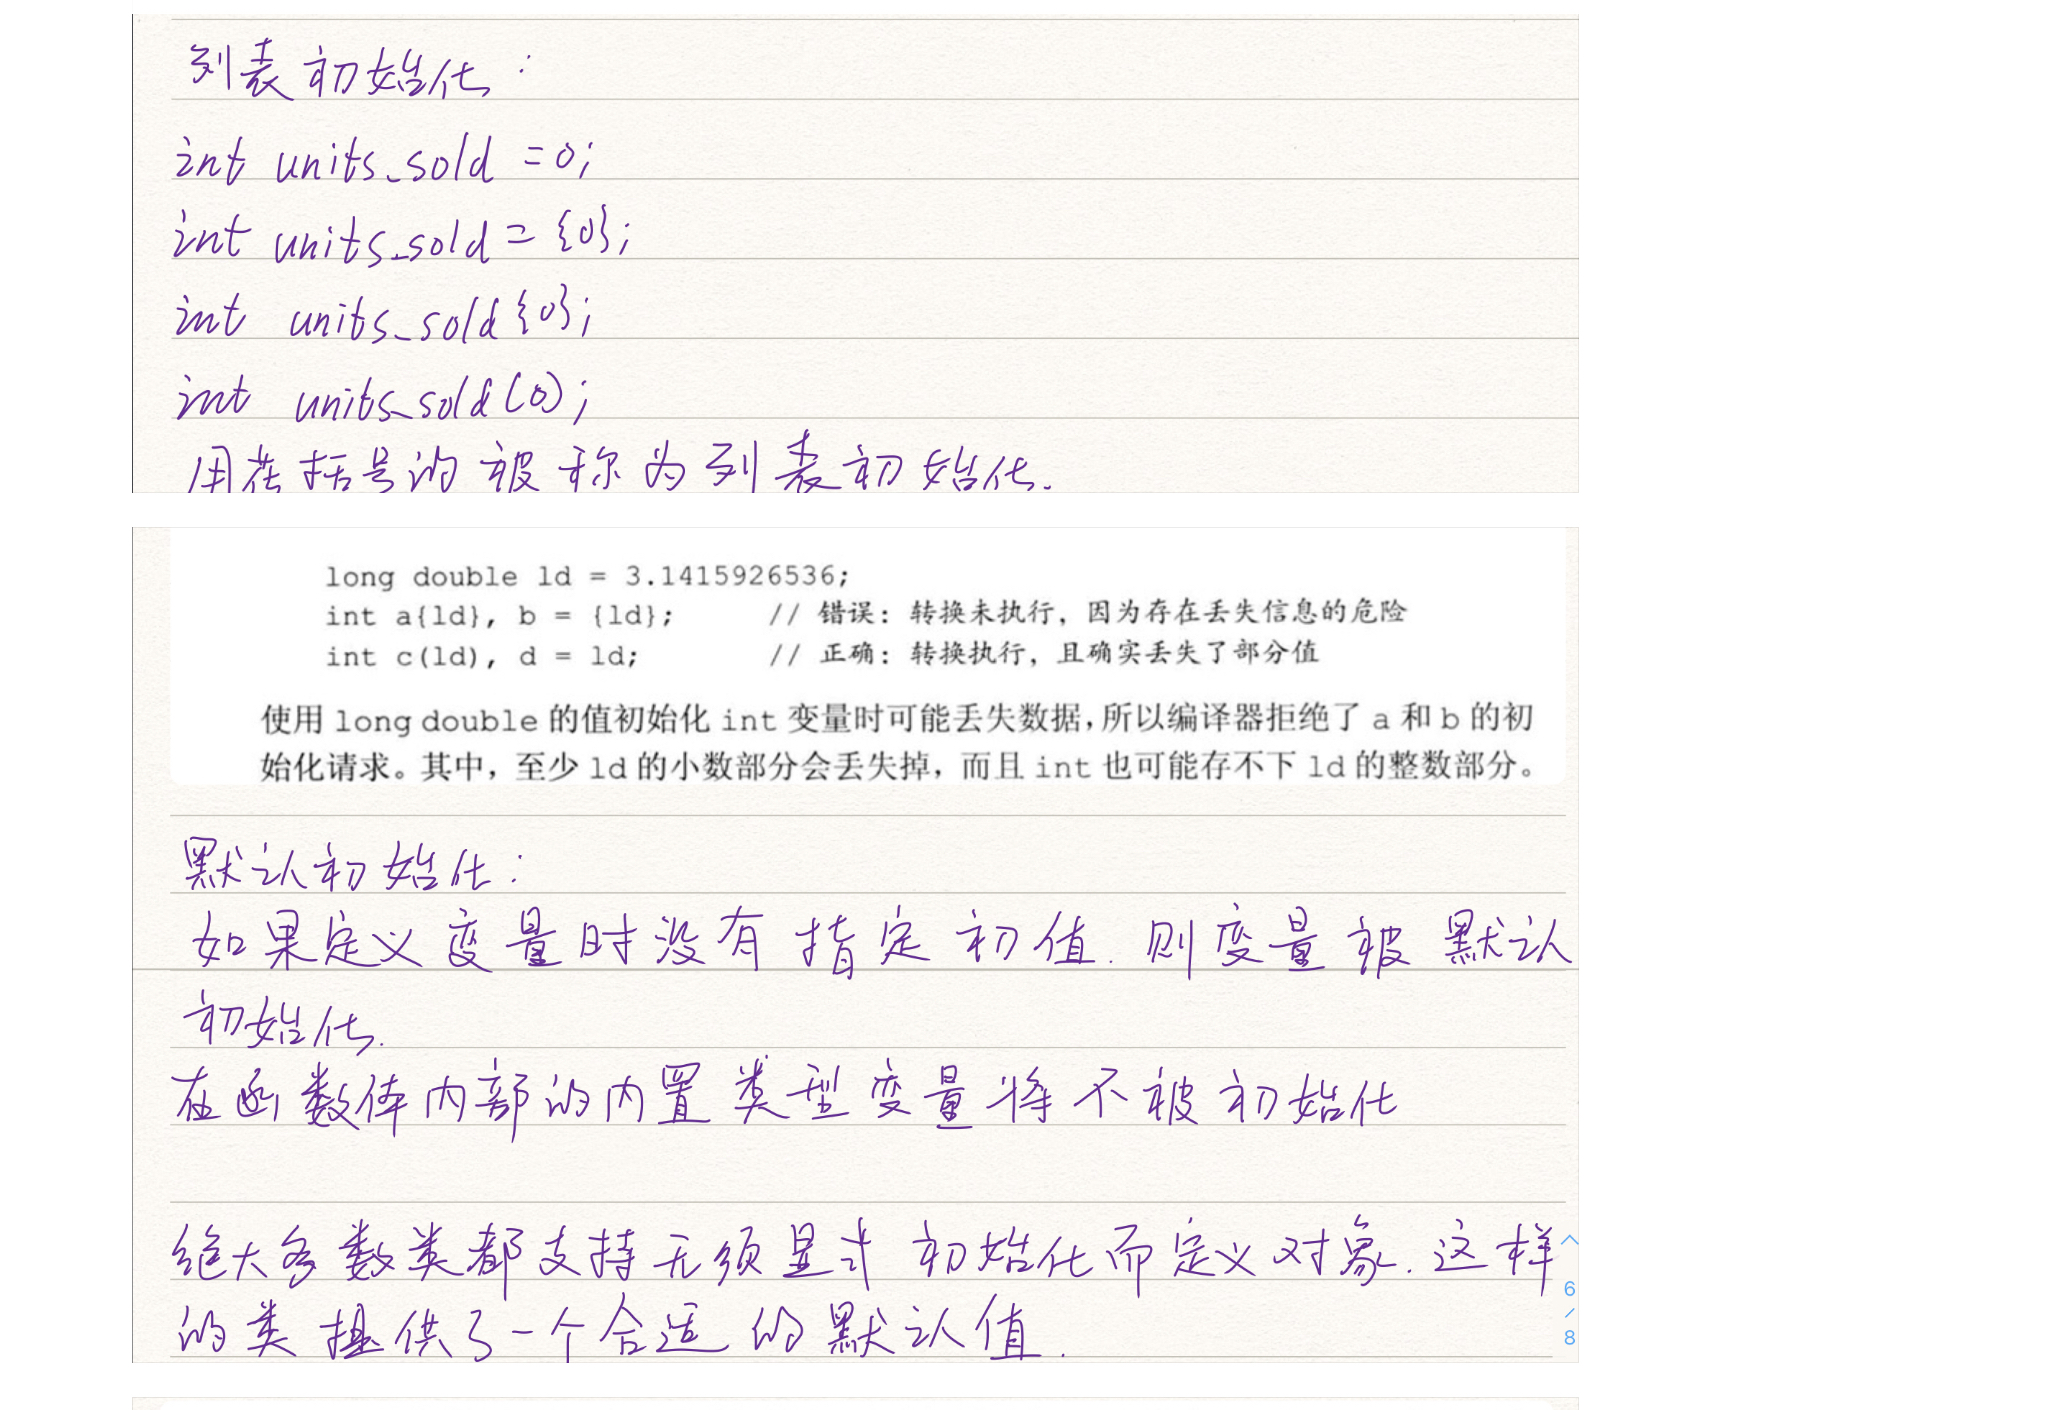 列表初始化:
int units_sold =0;
int units_sold = {0};
int units_sold{0};
int units_sold(0);
用花括号的被称为列表初始化.
long double ld = 3.1415926536;
int a{ld}, b = {ld};      // 错误: 转换未执行, 因为存在丢失信息的危险
int c(ld), d = ld;        // 正确: 转换执行, 且确实丢失了部分值
使用 long double 的值初始化 int 变量时可能丢失数据,所以编译器拒绝了 a 和 b 的初
始化请求。其中, 至少 ld 的小数部分会丢失掉, 而且 int 也可能存不下 ld 的整数部分。
默认初始化:
如果定义变量时没有指定初值. 则变量被默认
初始化.
在函数体内部的内置类型变量将不被初始化
绝大多数类都支持无须显式初始化而定义对象. 这样
的类提供了一个合适的默认值.
6
/
8